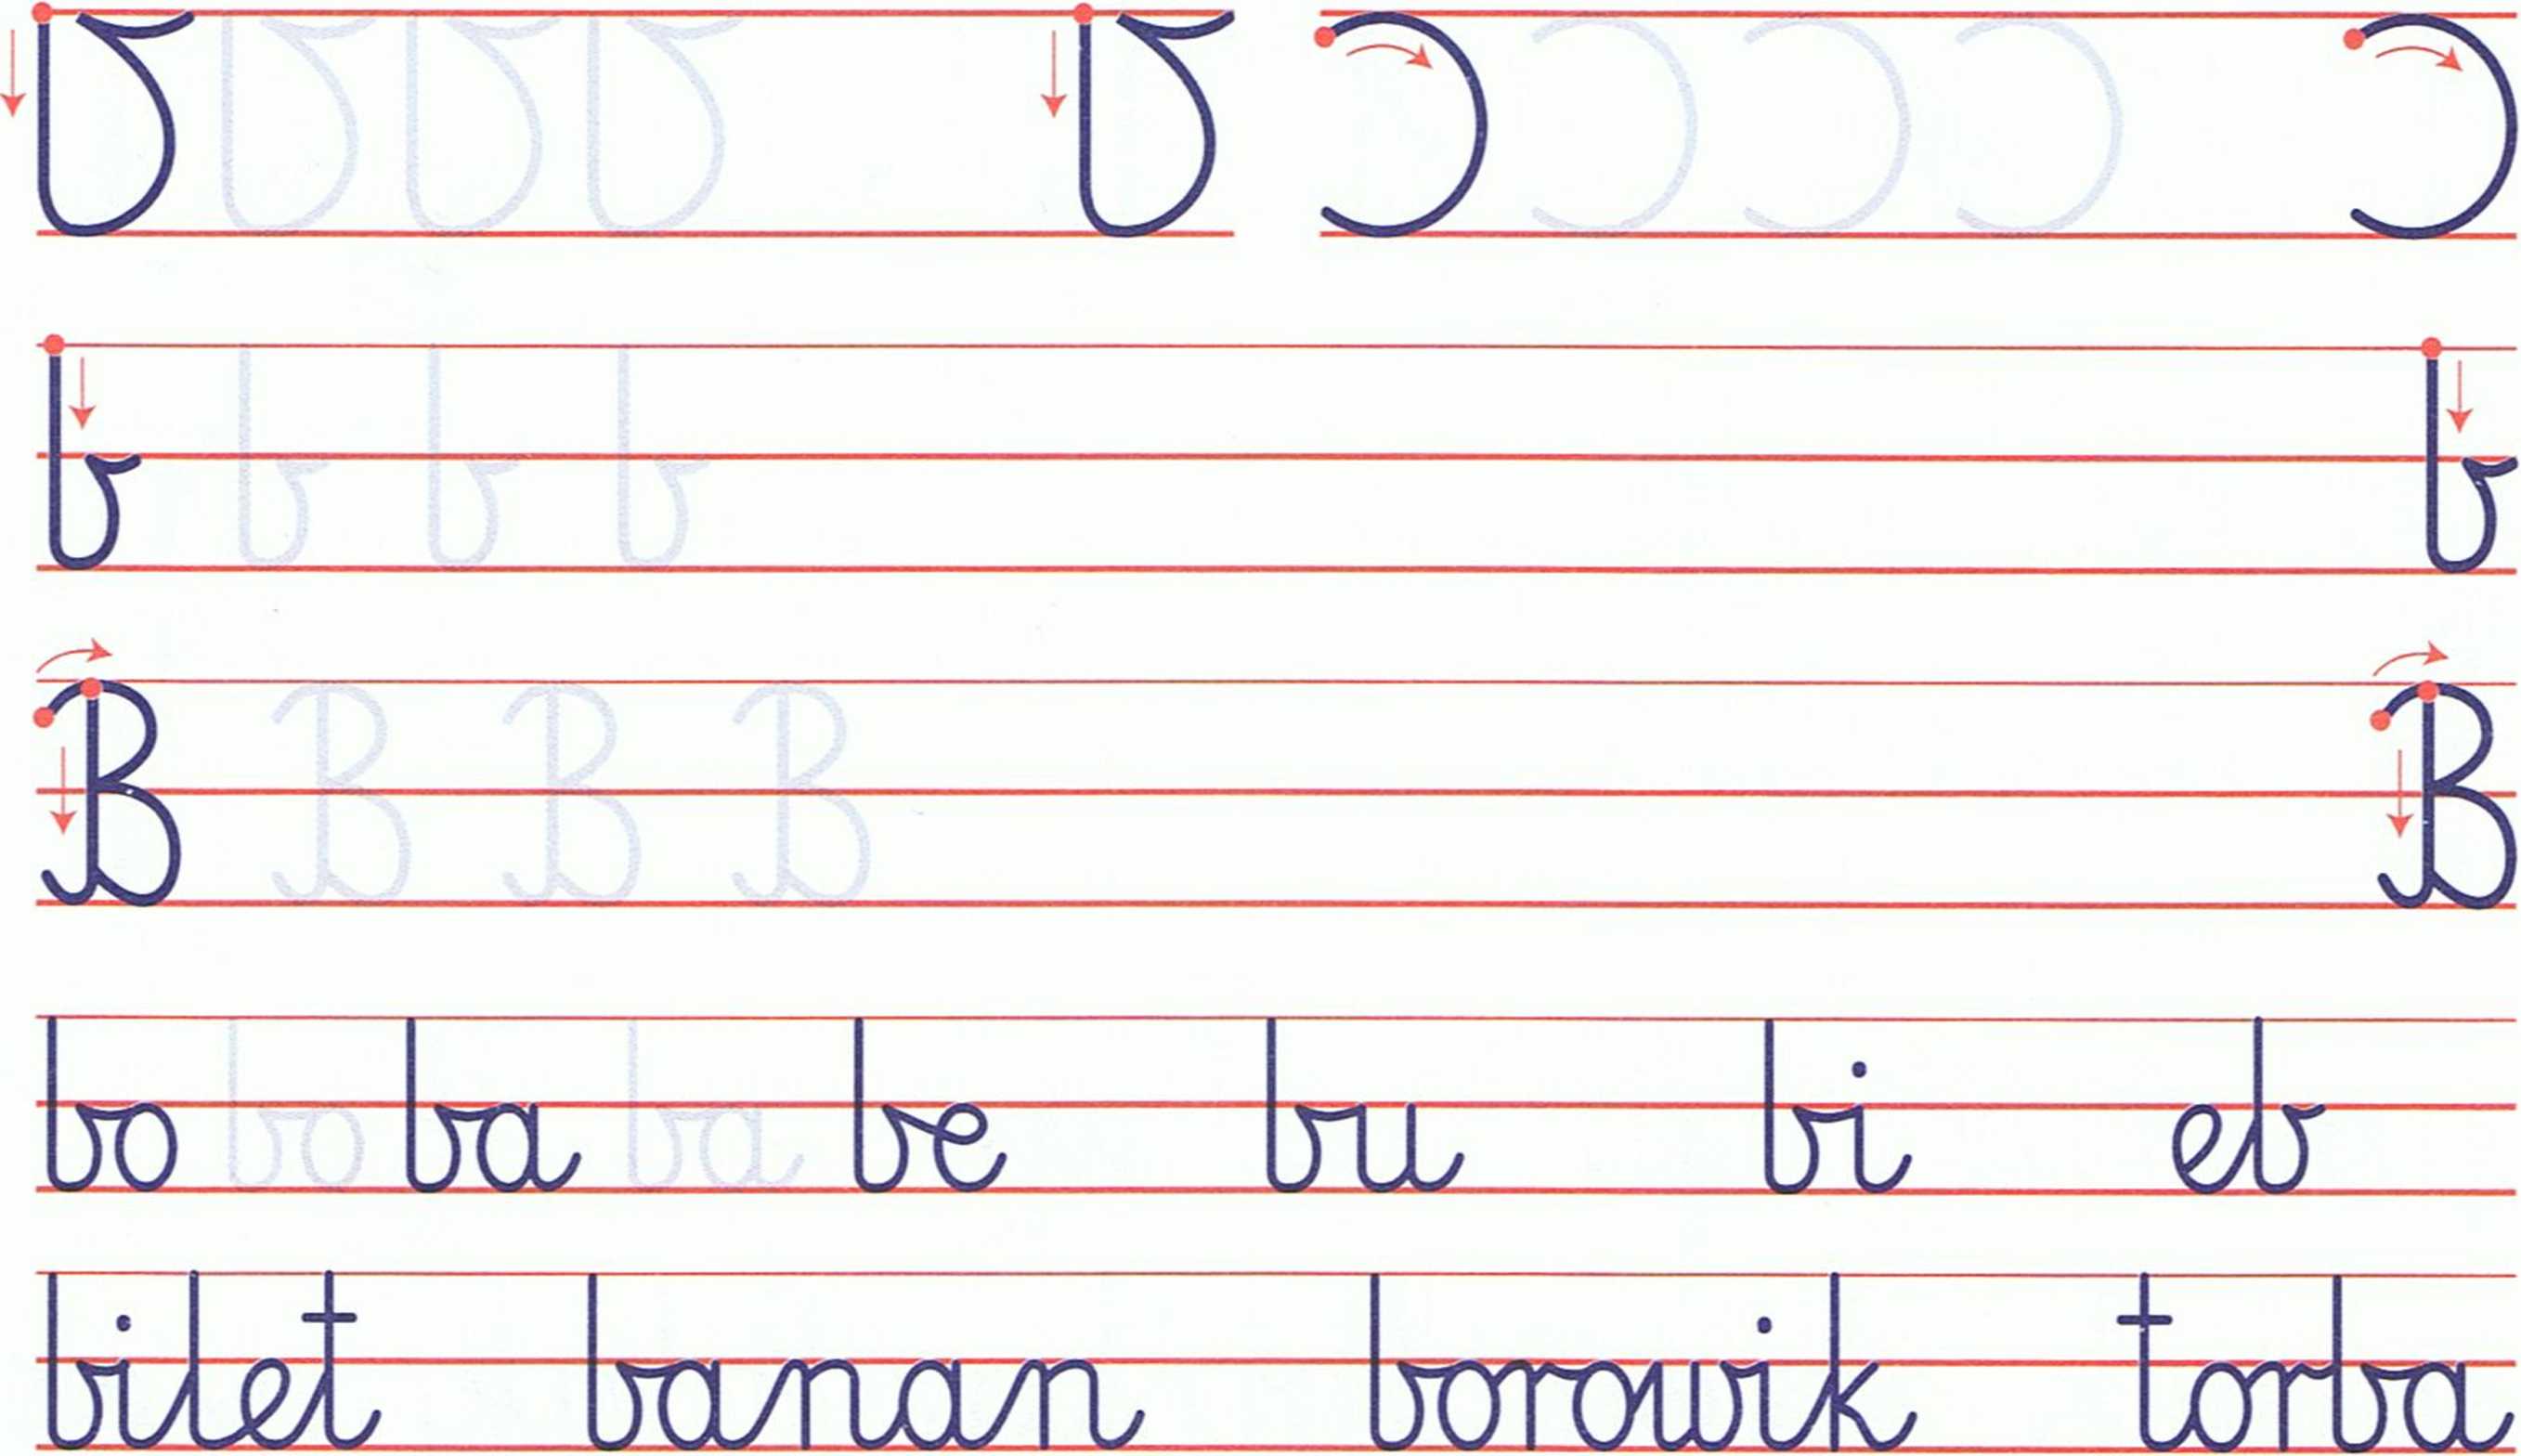 b b b b
b b b b b
B B B B B
bo bo ba ba be bu bi eb
bilet banan borowik torba